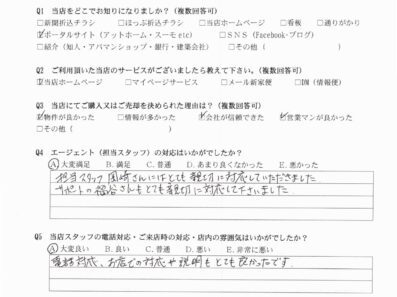 Q1 当店をどこでお知りになりましたか?（複数回答可）
□新聞折込チラシ □ほっぷ折込チラシ □当店ホームページ □看板 □通りがかり
☑ポータルサイト（アットホーム・スーモetc） □SNS（Facebook・ブログ）
□紹介（知人・アパマンショップ・銀行・建築会社） □その他（ ）
Q2 ご利用頂いた当店のサービスがございましたら教えて下さい。（複数回答可）
☑当店ホームページ □マイページサービス □メール新家便 □DM（情報便）
Q3 当店にてご購入又はご売却を決められた理由は?（複数回答可）
☑物件が良かった □情報が良かった ☑会社が信頼できた ☑営業マンが良かった
□その他（ ）
Q4 エージェント（担当スタッフ）の対応はいかがでしたか?
Ⓐ大変満足 B.満足 C.普通 D.あまり良くなかった E.悪かった
担当スタッフ 岡崎さんにはとても親切に対応していただきました
サポートの 谷さんもとても親切に対応して下さいました
Q5 当店スタッフの電話対応・ご来店時の対応・店内の雰囲気はいかがでしたか?
Ⓐ大変良い B.良い C.普通 D.悪い E.非常に悪い
電話対応、お店での対応や説明もとても良かったです.